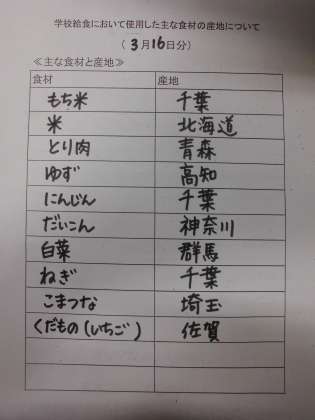 学校給食において使用した主な食材の産地について
(3月16日分)
≪主な食材と産地≫
食材 産地
もち米 千葉
米 北海道
とり肉 青森
ゆず 高知
にんじん 千葉
だいこん 神奈川
白菜 群馬
ねぎ 千葉
こまつな 埼玉
くだもの(いちご) 佐賀